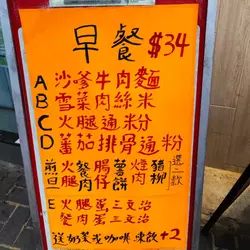 早餐 $34
A 沙嗲牛肉麵
B 雪菜肉絲米
C 火腿通粉
D 蕃茄排骨通粉
煎旦 火腿 餐肉 腸仔 薯餅 燒肉 豬柳 選二款
E 火腿蛋三文治
餐肉蛋三文治
送奶茶或咖啡 凍飲+2